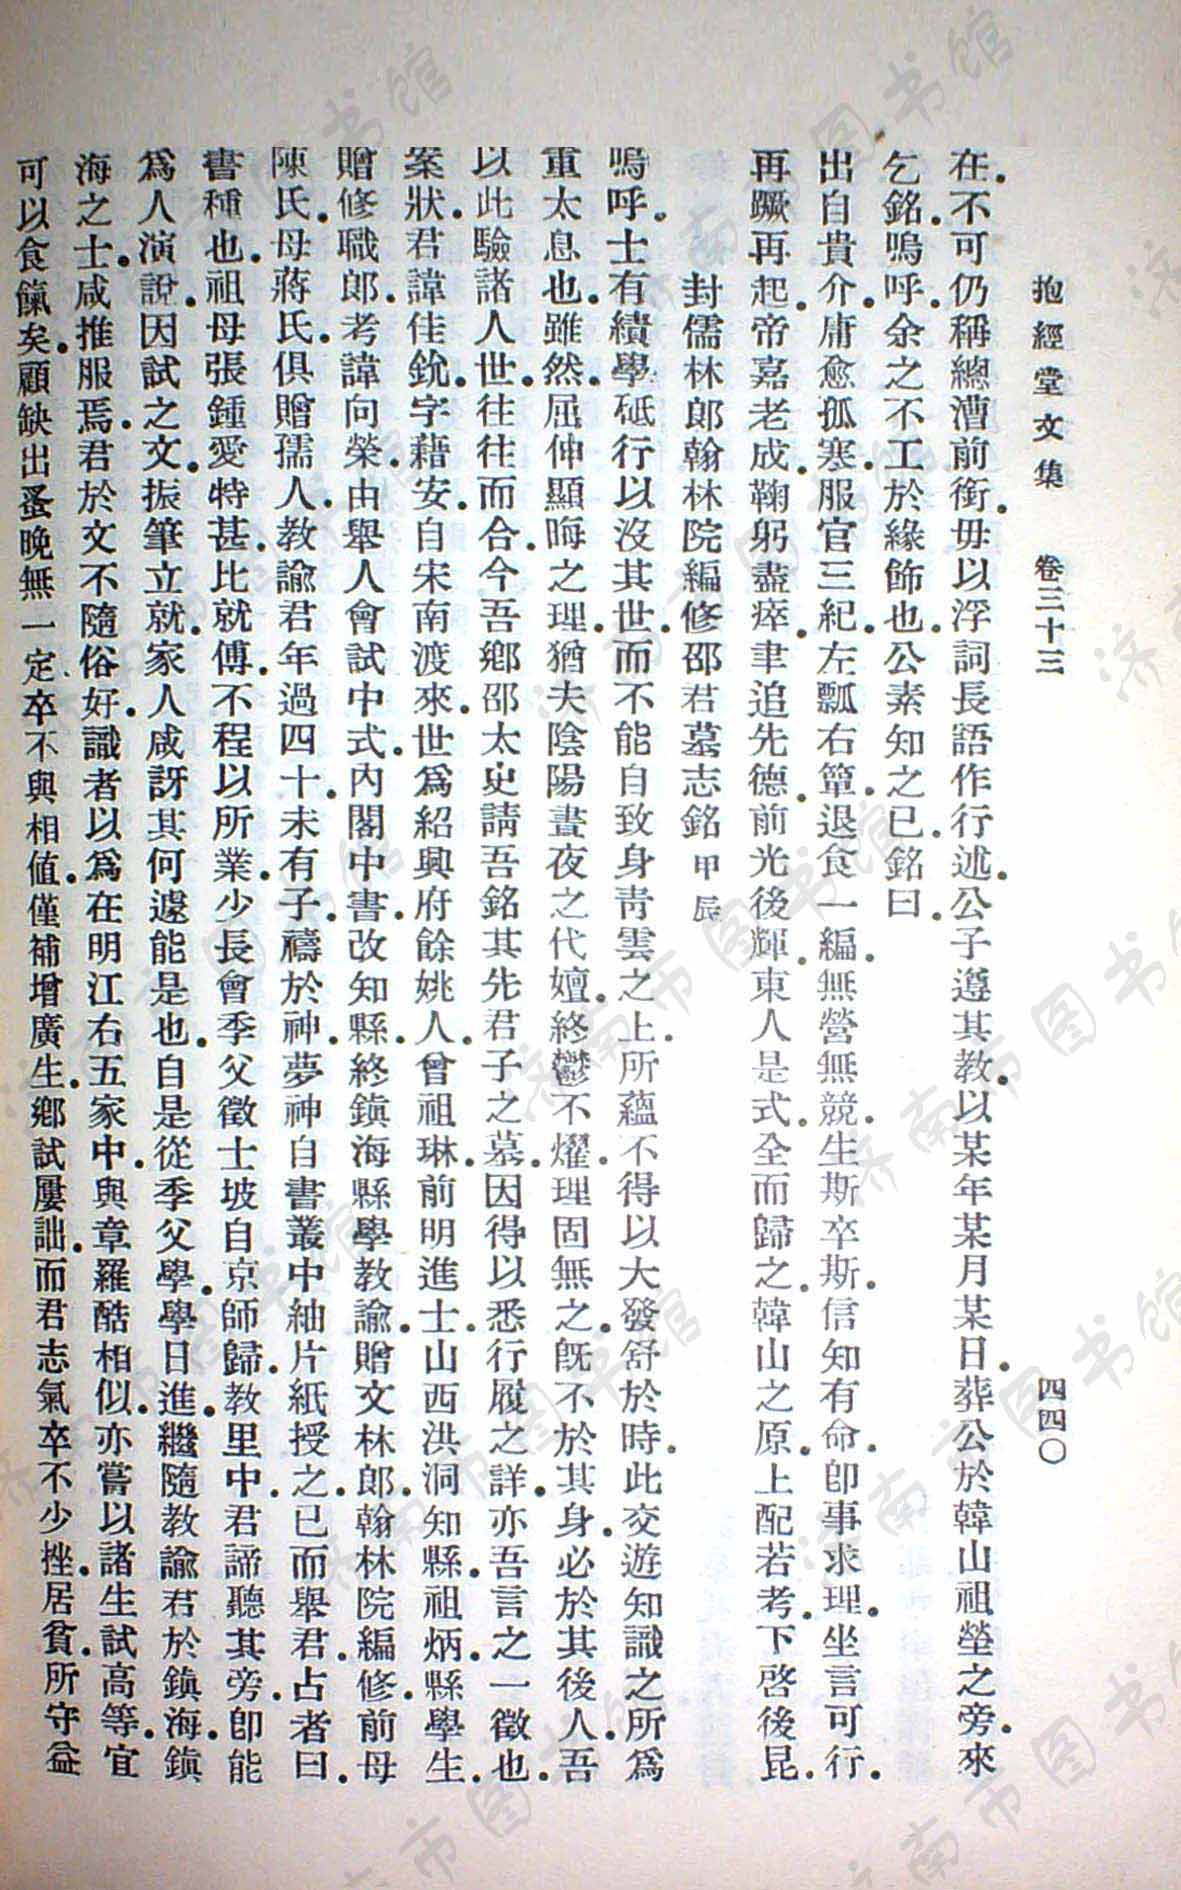 抱經堂文集　卷三十三　四四〇
在．不可仍稱總漕前銜．毋以浮詞長語作行述．公子遵其教．以某年某月某日．葬公於韓山祖塋之旁．來
乞銘．嗚呼．余之不工於緣飾也．公素知之已．銘曰．
出自貴介．庸愈孤寒．服官三紀．左瓢右簞．退食一編．無營無競．生斯卒斯．信知有命．卽事求理．坐言可行．
再蹶再起．帝嘉老成．鞠躬盡瘁．聿追先德．前光後輝．東人是式．全而歸之．韓山之原．上配若考．下啓後昆．
封儒林郎翰林院編修邵君墓志銘甲辰
嗚呼．士有績學砥行以沒其世．而不能自致身靑雲之上．所蘊不得以大發舒於時．此交遊知識之所爲
重太息也．雖然．屈伸顯晦之理．猶夫陰陽晝夜之代嬗．終鬱不燿．理固無之．旣不於其身．必於其後人．吾
以此驗諸人世．往往而合．今吾鄕邵太史請吾銘其先君子之墓．因得以悉行履之詳．亦吾言之一徵也．
案狀．君諱佳銳．字藉安．自宋南渡來．世爲紹興府餘姚人．曾祖琳．前明進士．山西洪洞知縣．祖炳．縣學生．
贈修職郎．考諱向榮．由舉人會試中式．內閣中書．改知縣．終鎭海縣學教諭．贈文林郎．翰林院編修．前母
陳氏．母蔣氏．俱贈孺人．教諭君年過四十．未有子．禱於神．夢神自書叢中紬片紙授之．已而舉君．占者曰．
書種也．祖母張鍾愛特甚．比就傅．不程以所業．少長會季父徵士坡自京師歸．教里中．君諦聽其旁．卽能
爲人演說．因試之文．振筆立就．家人咸訝其何遽能是也．自是從季父學．學日進．繼隨教諭君於鎭海．鎭
海之士．咸推服焉．君於文不隨俗好．識者以爲在明江右五家中．與章羅酷相似．亦嘗以諸生試高等．宜
可以食餼矣．顧缺出蚤晚無一定．卒不與相値．僅補增廣生．鄕試屢詘．而君志氣卒不少挫．居貧．所守益
济南市图书馆